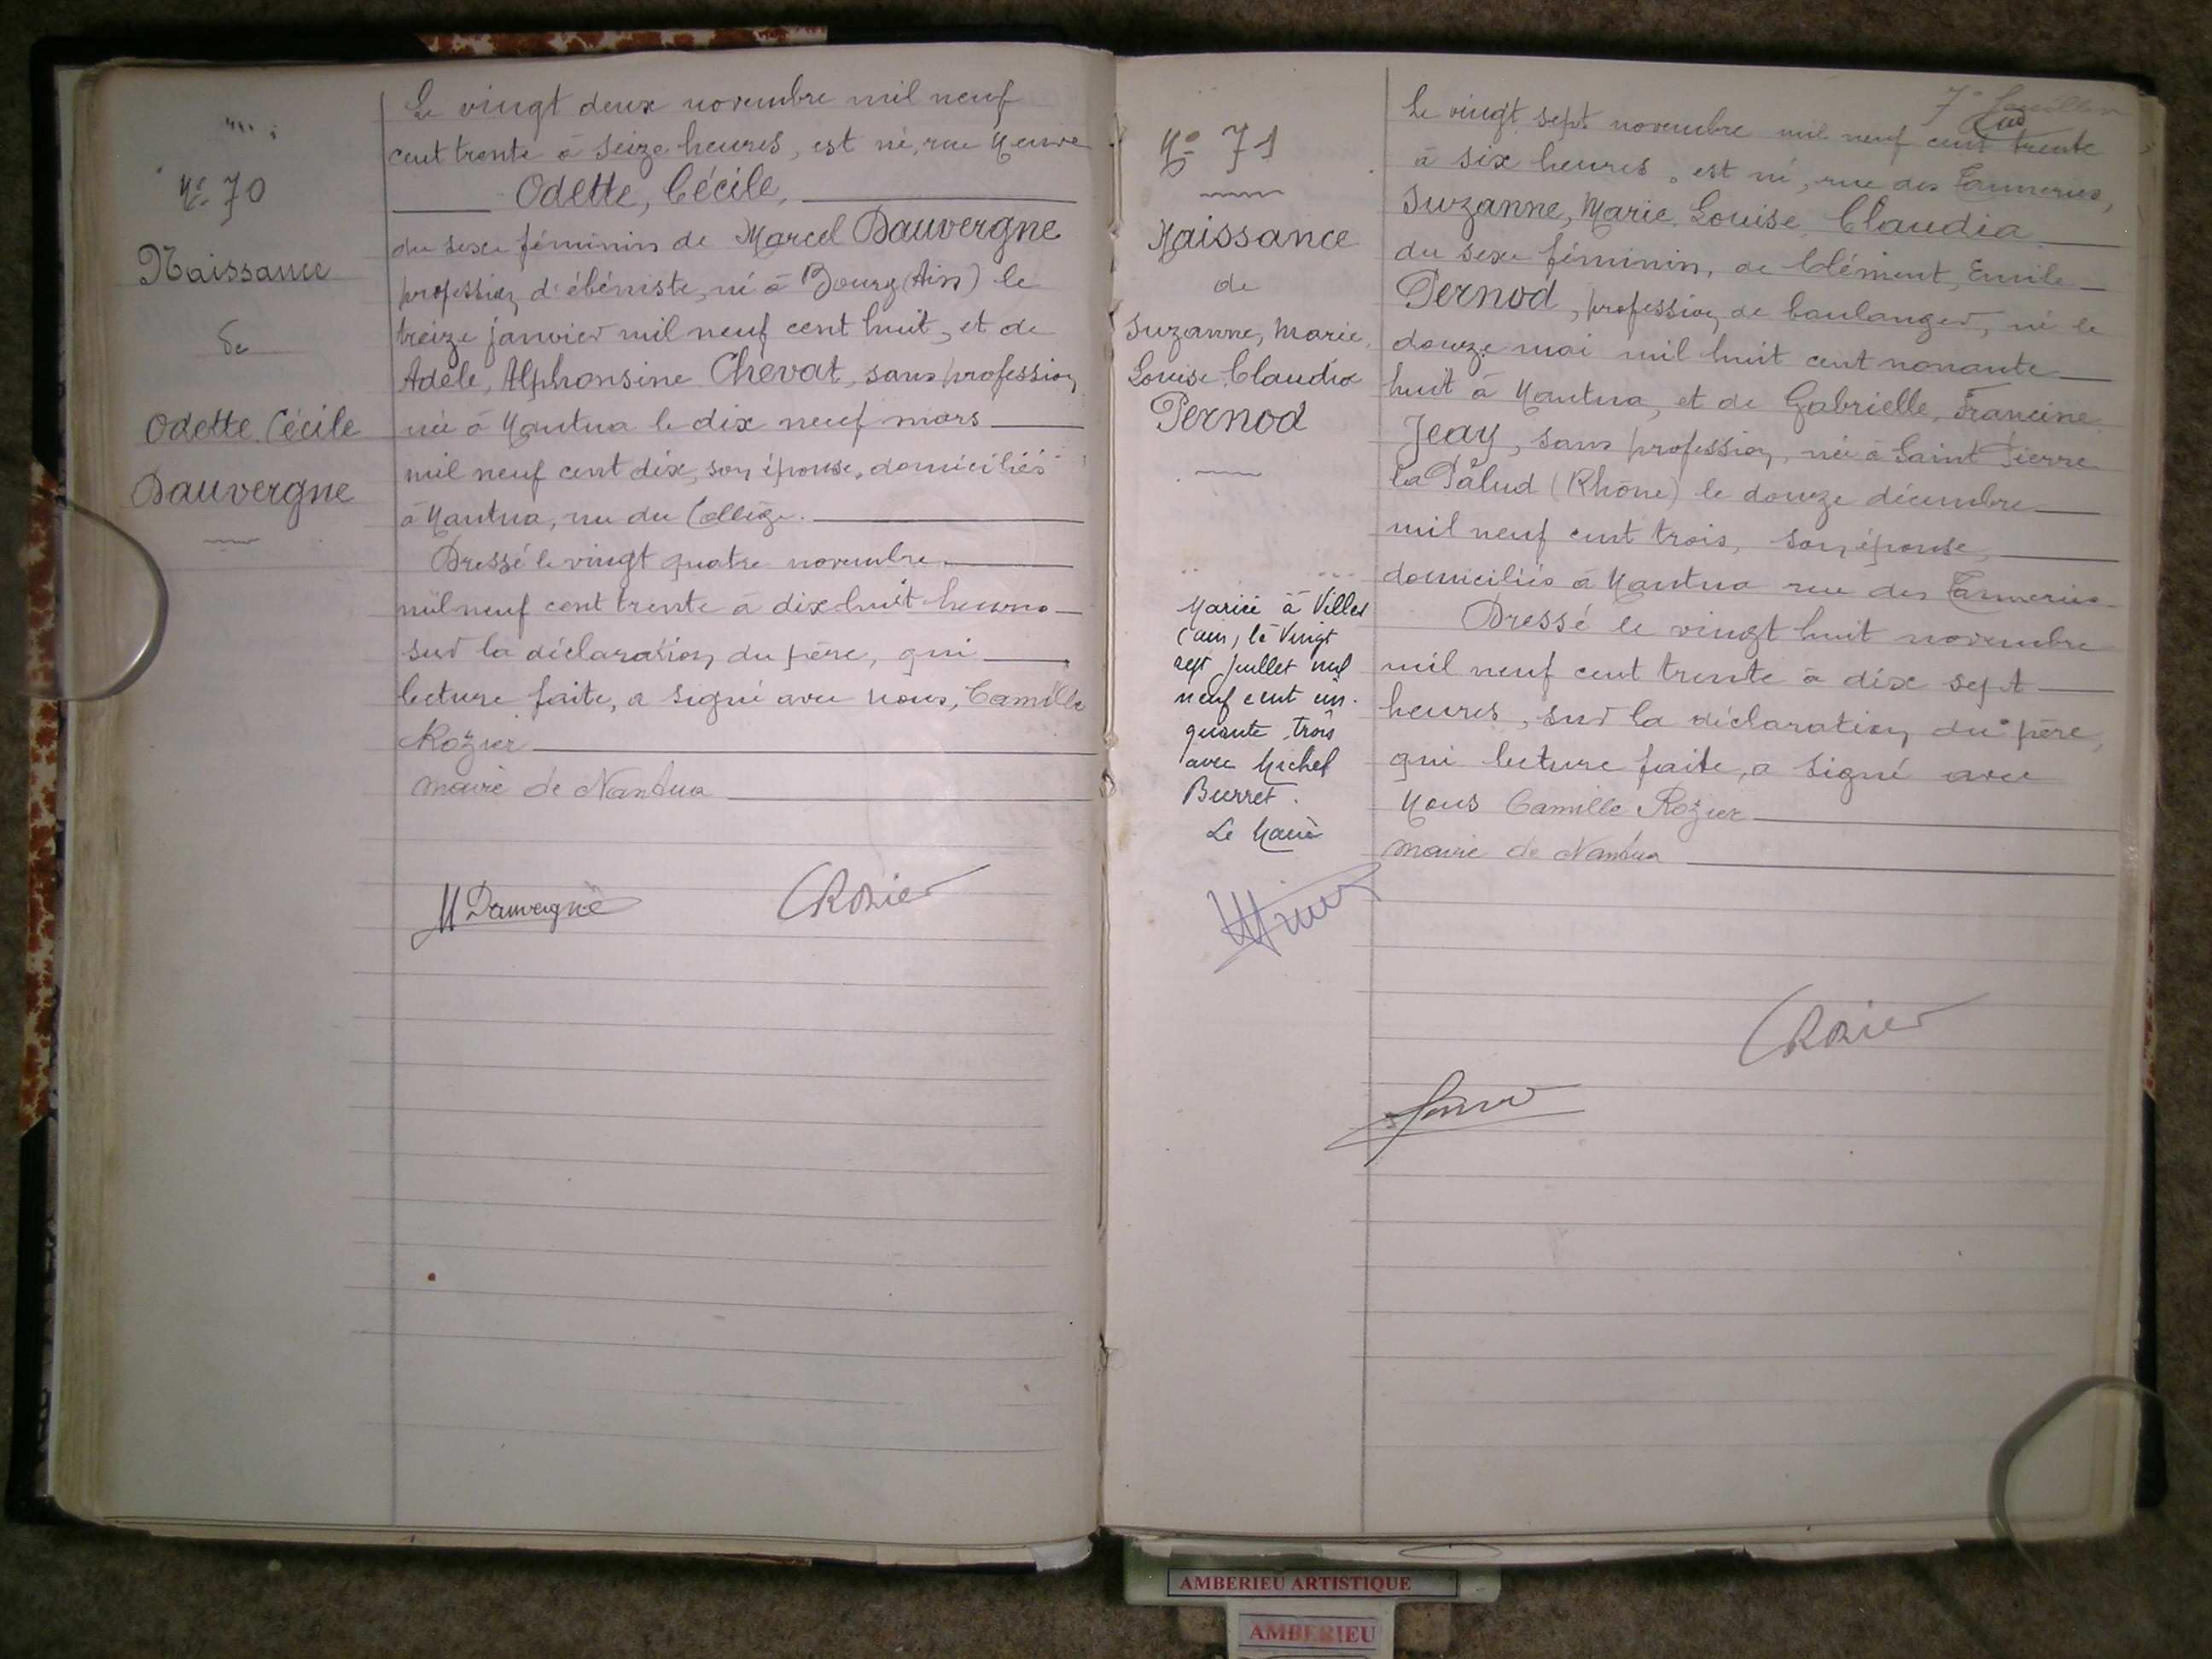 Nº 70
Naissance
de
Odette Cécile
Dauvergne
Le vingt deux novembre mil neuf
cent trente à seize heures, est né, rue Neuve
Odette, Cécile,
du sexe féminin de Marcel Dauvergne
profession d'ébéniste, né à Bourg (Ain) le
treize janvier mil neuf cent huit, et de
Adèle, Alphonsine Chevat, sans profession,
née à Nantua le dix neuf mars
mil neuf cent dix, son épouse, domiciliés
à Nantua, rue du Collège.
Dressé le vingt quatre novembre
mil neuf cent trente à dix huit heures
sur la déclaration du père, qui
lecture faite, a signé avec nous, Camille
Rozier
maire de Nantua
M Dauvergne
CRozier
7e feuillet
Nº 71
Naissance
de
Suzanne, Marie,
Louise, Claudia
Pernod
Mariée à Villes
(Ain), le Vingt
sept juillet mil
neuf cent cin-
quante trois
avec Michel
Burret.
Le Maire
Le vingt sept novembre mil neuf cent trente
à six heures, est né, rue des Tanneries,
Suzanne, Marie, Louise, Claudia
du sexe féminin, de Clément, Emile
Pernod, profession de boulanger, né le
douze mai mil huit cent nonante
huit à Nantua, et de Gabrielle, Francine
Jeay, sans profession, née à Saint Pierre
la Palud (Rhône) le douze décembre
mil neuf cent trois, son épouse,
domiciliés à Nantua rue des Tanneries
Dressé le vingt huit novembre
mil neuf cent trente à dix sept
heures, sur la déclaration du père,
qui lecture faite, a signé avec
Nous Camille Rozier
maire de Nantua
CRozier
AMBERIEU ARTISTIQUE
AMBERIEU